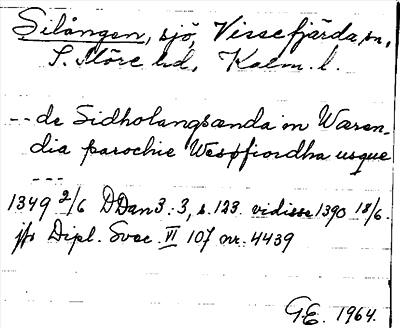 Silången, sjö, Vissefjärda sn,
S. Möre hd, Kalm. l.
-- de Sidholangsænda in Wæren-
dia parochie Wessfiordha usque
---
1349 2/6 DDan 3: 3, s. 123. vidisse 1390 18/6.
jfr Dipl. Svec. VI 107 nr. 4439
G.E. 1964.